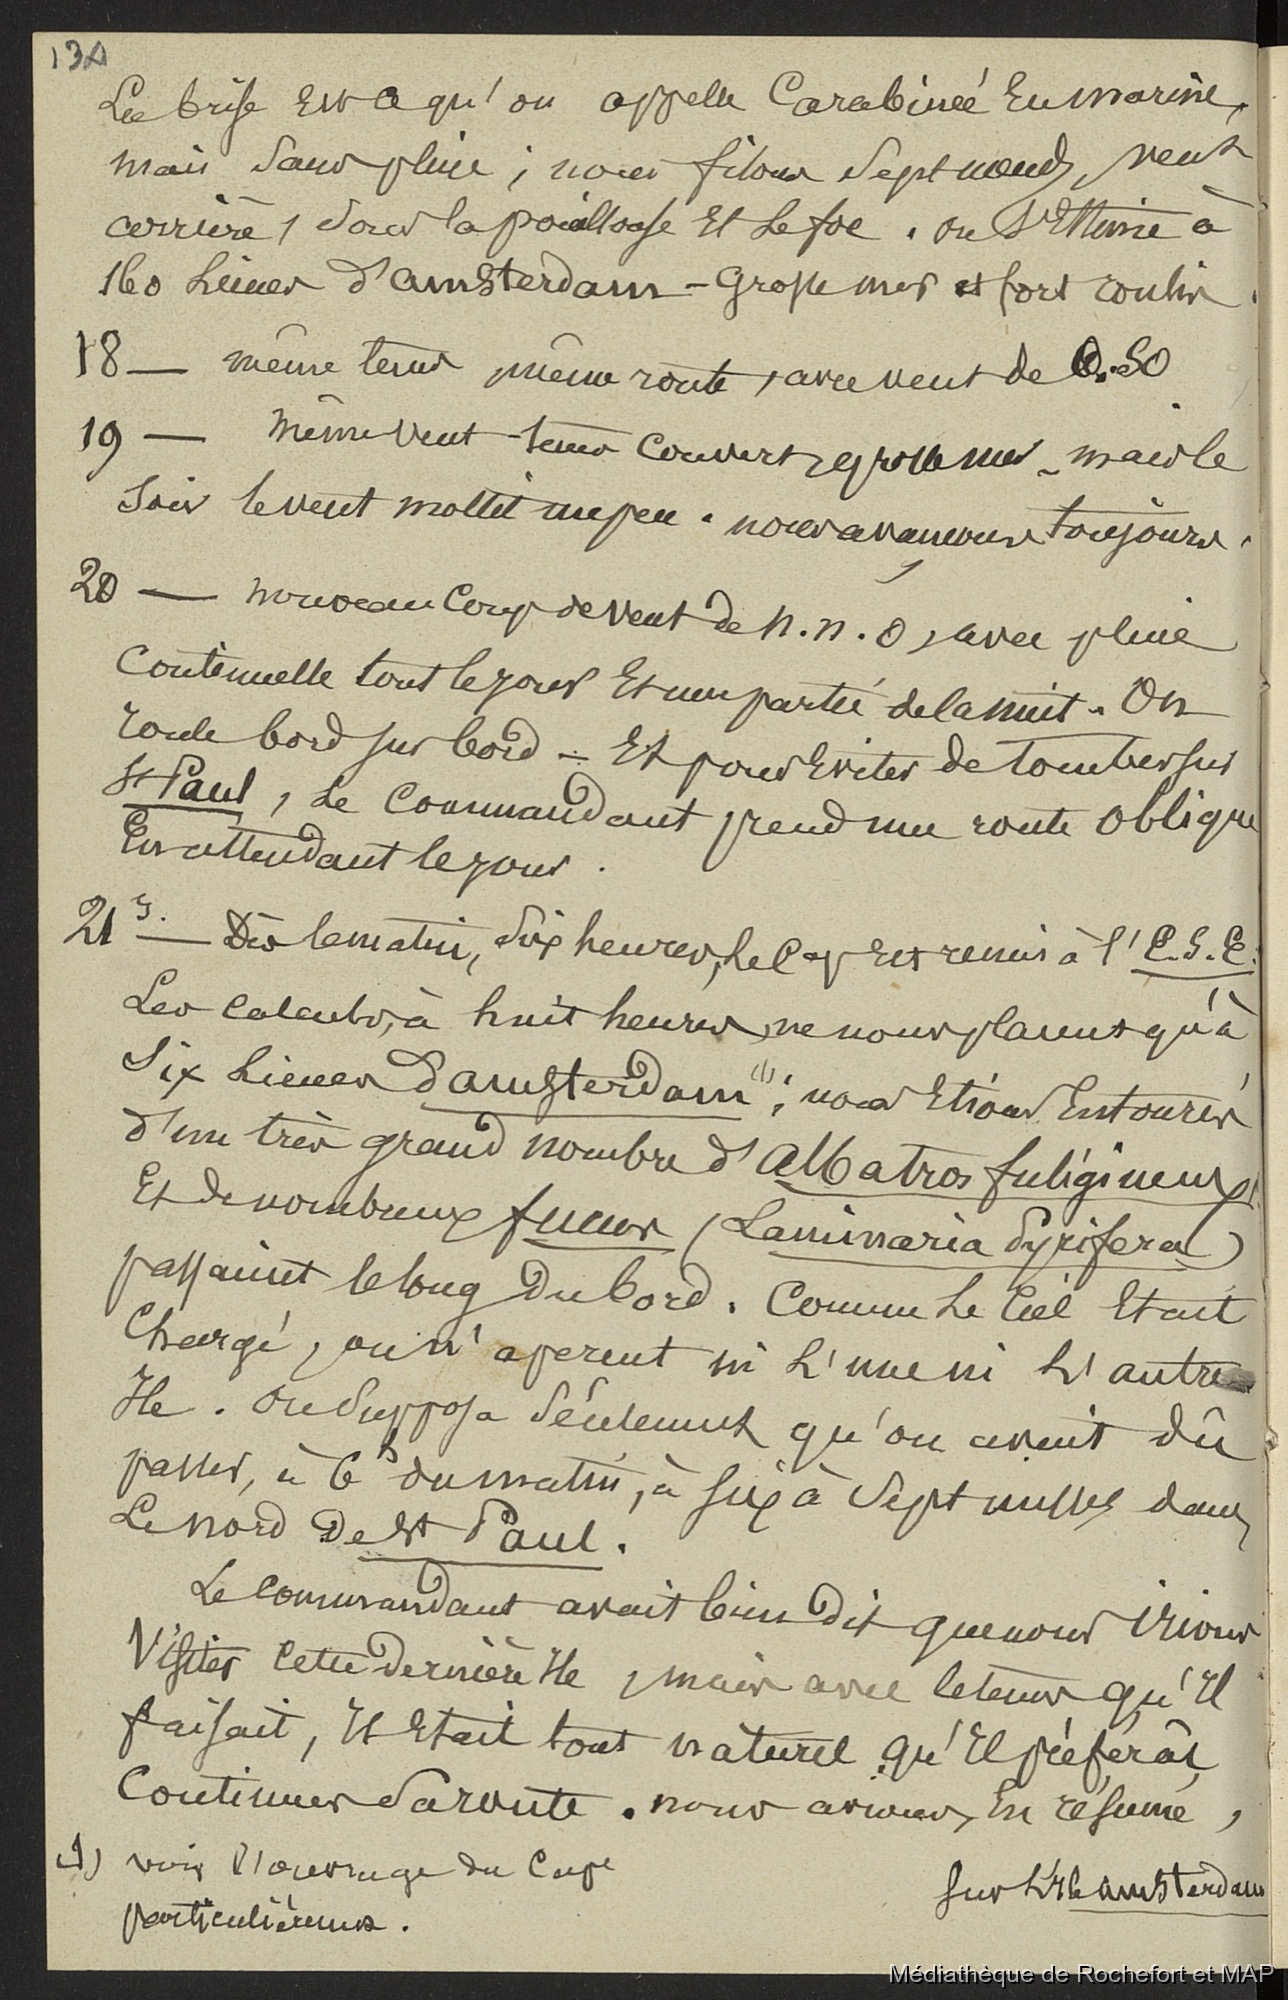 134
La brise est ce qu'on appelle Carabinée En marine,
mais sans pluie ; nous filons sept nœuds, vent
arrière, sous la pouillouse Et Le foc. on s'Estime à
160 Lieues d'amsterdam - Grosse mer et fort roulis.
18 — même tems, même route, avec vent de O.SO
19 — même vent - tems couvert, grosse mer - mais le
soir le vent mollit un peu. nous avançons toujours.
20 — nouveau Coup de vent de n.n.O, avec pluie
Continuelle tout le jour Et une partie de la nuit. On
roule bord sur bord - Et pour Eviter de tomber sur
St Paul, Le Commandant prend une route oblique
En attendant le jour.
21 — Dès le matin, six heures, Le Cap Est remis à l'E.S.E.
Les calculs, à huit heures, ne nous placent qu'à
six Lieues d'amsterdam (1); nous Etions Entourés
d'un très grand nombre d'Albatros fuligineux
Et de nombreux fucus (Laminaria Pyrifera)
passaient le long du bord. Comme Le Ciel Etait
Chargé, on n'aperçut ni L'une ni L'autre
Ile. On supposa seulement qu'on avait dû
passer, à 6h du matin, à six à sept milles dans
Le nord de St Paul.
Le Commandant avait bien dit que nous irions
Visiter cette dernière Ile, mais avec le tems qu'Il
faisait, Il Etait tout naturel qu'Il préférât
Continuer sa route. nous avions, En résumé,
(1) voir l'ouvrage du Cape
particulièrement.
sur L'Ile amsterdam
Médiathèque de Rochefort et MAP